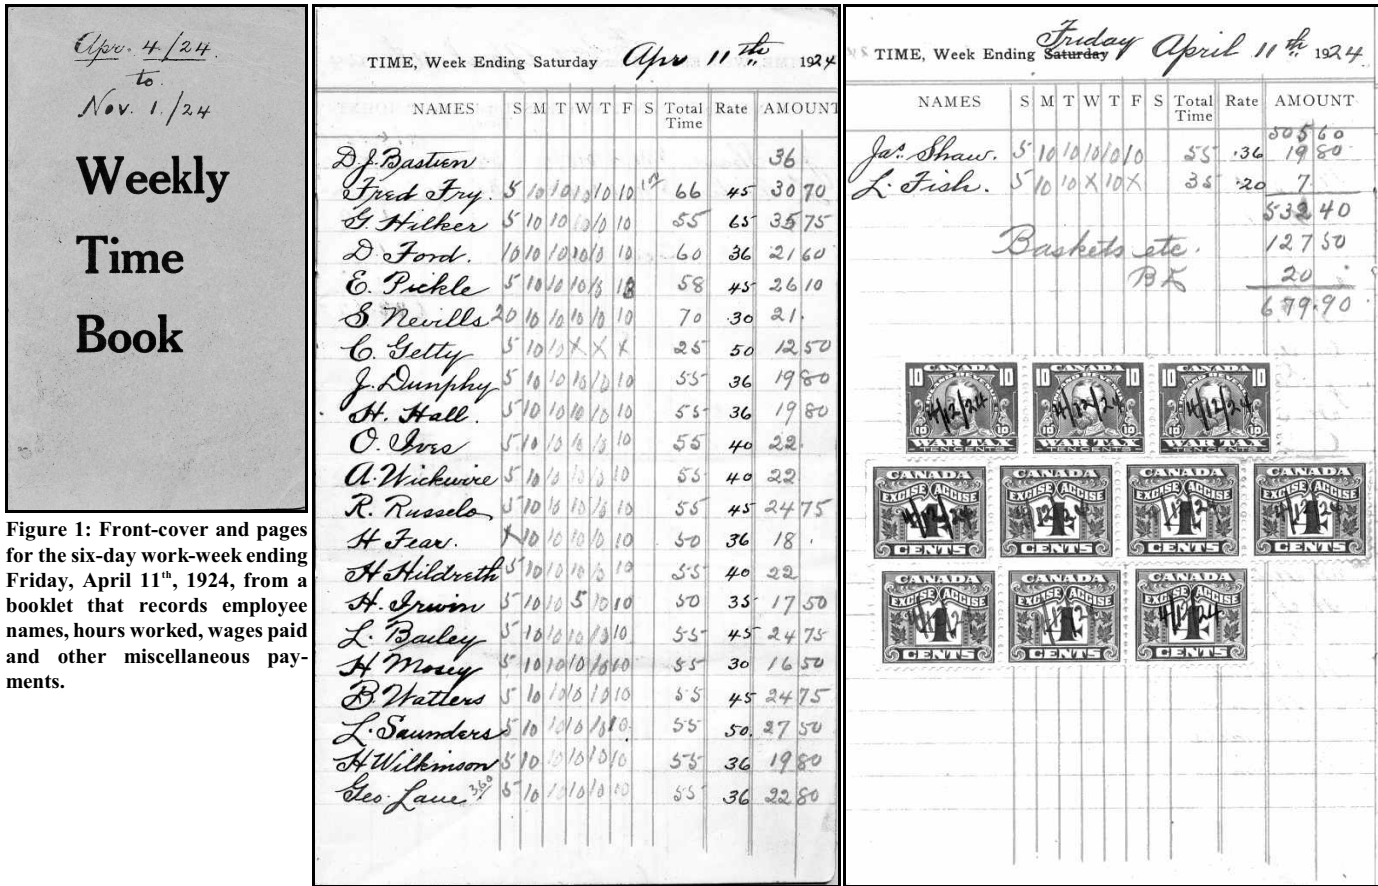 Apr. 4/24.
to
Nov. 1./24
Weekly
Time
Book
Figure 1: Front-cover and pages
for the six-day work-week ending
Friday, April 11th, 1924, from a
booklet that records employee
names, hours worked, wages paid
and other miscellaneous pay-
ments.
TIME, Week Ending Saturday Apr 11th 1924
NAMES S M T W T F S Total Time Rate AMOUNT
D. J. Bastien 36
Fred Fry. 5 10 10 10 10 10 66 45 30 70
G. Hilker 5 10 10 10 10 10 55 65 35 75
D. Ford. 10 10 10 10 10 10 60 36 21 60
E. Pickle 5 10 10 10 10 13 58 45 26 10
S. Nevills 20 10 10 10 10 10 70 .30 21.
C. Getty 5 10 10 X X X 25 50 12 50
J. Dunphy 5 10 10 10 10 10 55 36 19 80
H. Hall. 5 10 10 10 10 10 55 36 19 80
O. Ives 5 10 10 10 10 10 55 40 22.
A. Wickwire 5 10 10 10 10 10 55 40 22
R. Russelo 5 10 10 10 10 10 55 45 24 75
H Fear. X 10 10 10 10 10 50 36 18 .
H Hildreth 5 10 10 10 10 10 55 40 22
H. Irwin 5 10 10 5 10 10 50 35 17 50
L. Bailey 5 10 10 10 10 10 55 45 24 75
H Mosey 5 10 10 10 10 10 55 30 16 50
B. Watters 5 10 10 10 10 10 55 45 24 75
L. Saunders 5 10 10 10 10 10 55 50. 27 50
H Wilkinson 5 10 10 10 10 10 55 36 19 80
Geo. Lane 3.60 5 10 10 10 10 10 55 36 22 80
TIME, Week Ending Saturday Friday April 11th 1924
NAMES S M T W T F S Total Time Rate AMOUNT
505 60
Jas. Shaw. 5 10 10 10 10 10 55 .36 19 80
L. Fish. 5 10 10 X 10 X 35 .20 7.
532 40
Baskets etc. 127 50
20
679.90
10 CANADA 10 10 CANADA 10 10 CANADA 10
4/12/24 4/12/24 4/12/24
10 10 10 10 10 10
WAR TAX WAR TAX WAR TAX
TEN CENTS TEN CENTS TEN CENTS
CANADA CANADA CANADA CANADA
EXCISE ACCISE EXCISE ACCISE EXCISE ACCISE EXCISE ACCISE
1 1 1 1
4/12/24 4/12/24 4/12/24 4/12/24
CENTS CENTS CENTS CENTS
CANADA CANADA CANADA
EXCISE ACCISE EXCISE ACCISE EXCISE ACCISE
1 1 1
4/12 4/12 4/12/24
CENTS CENTS CENTS